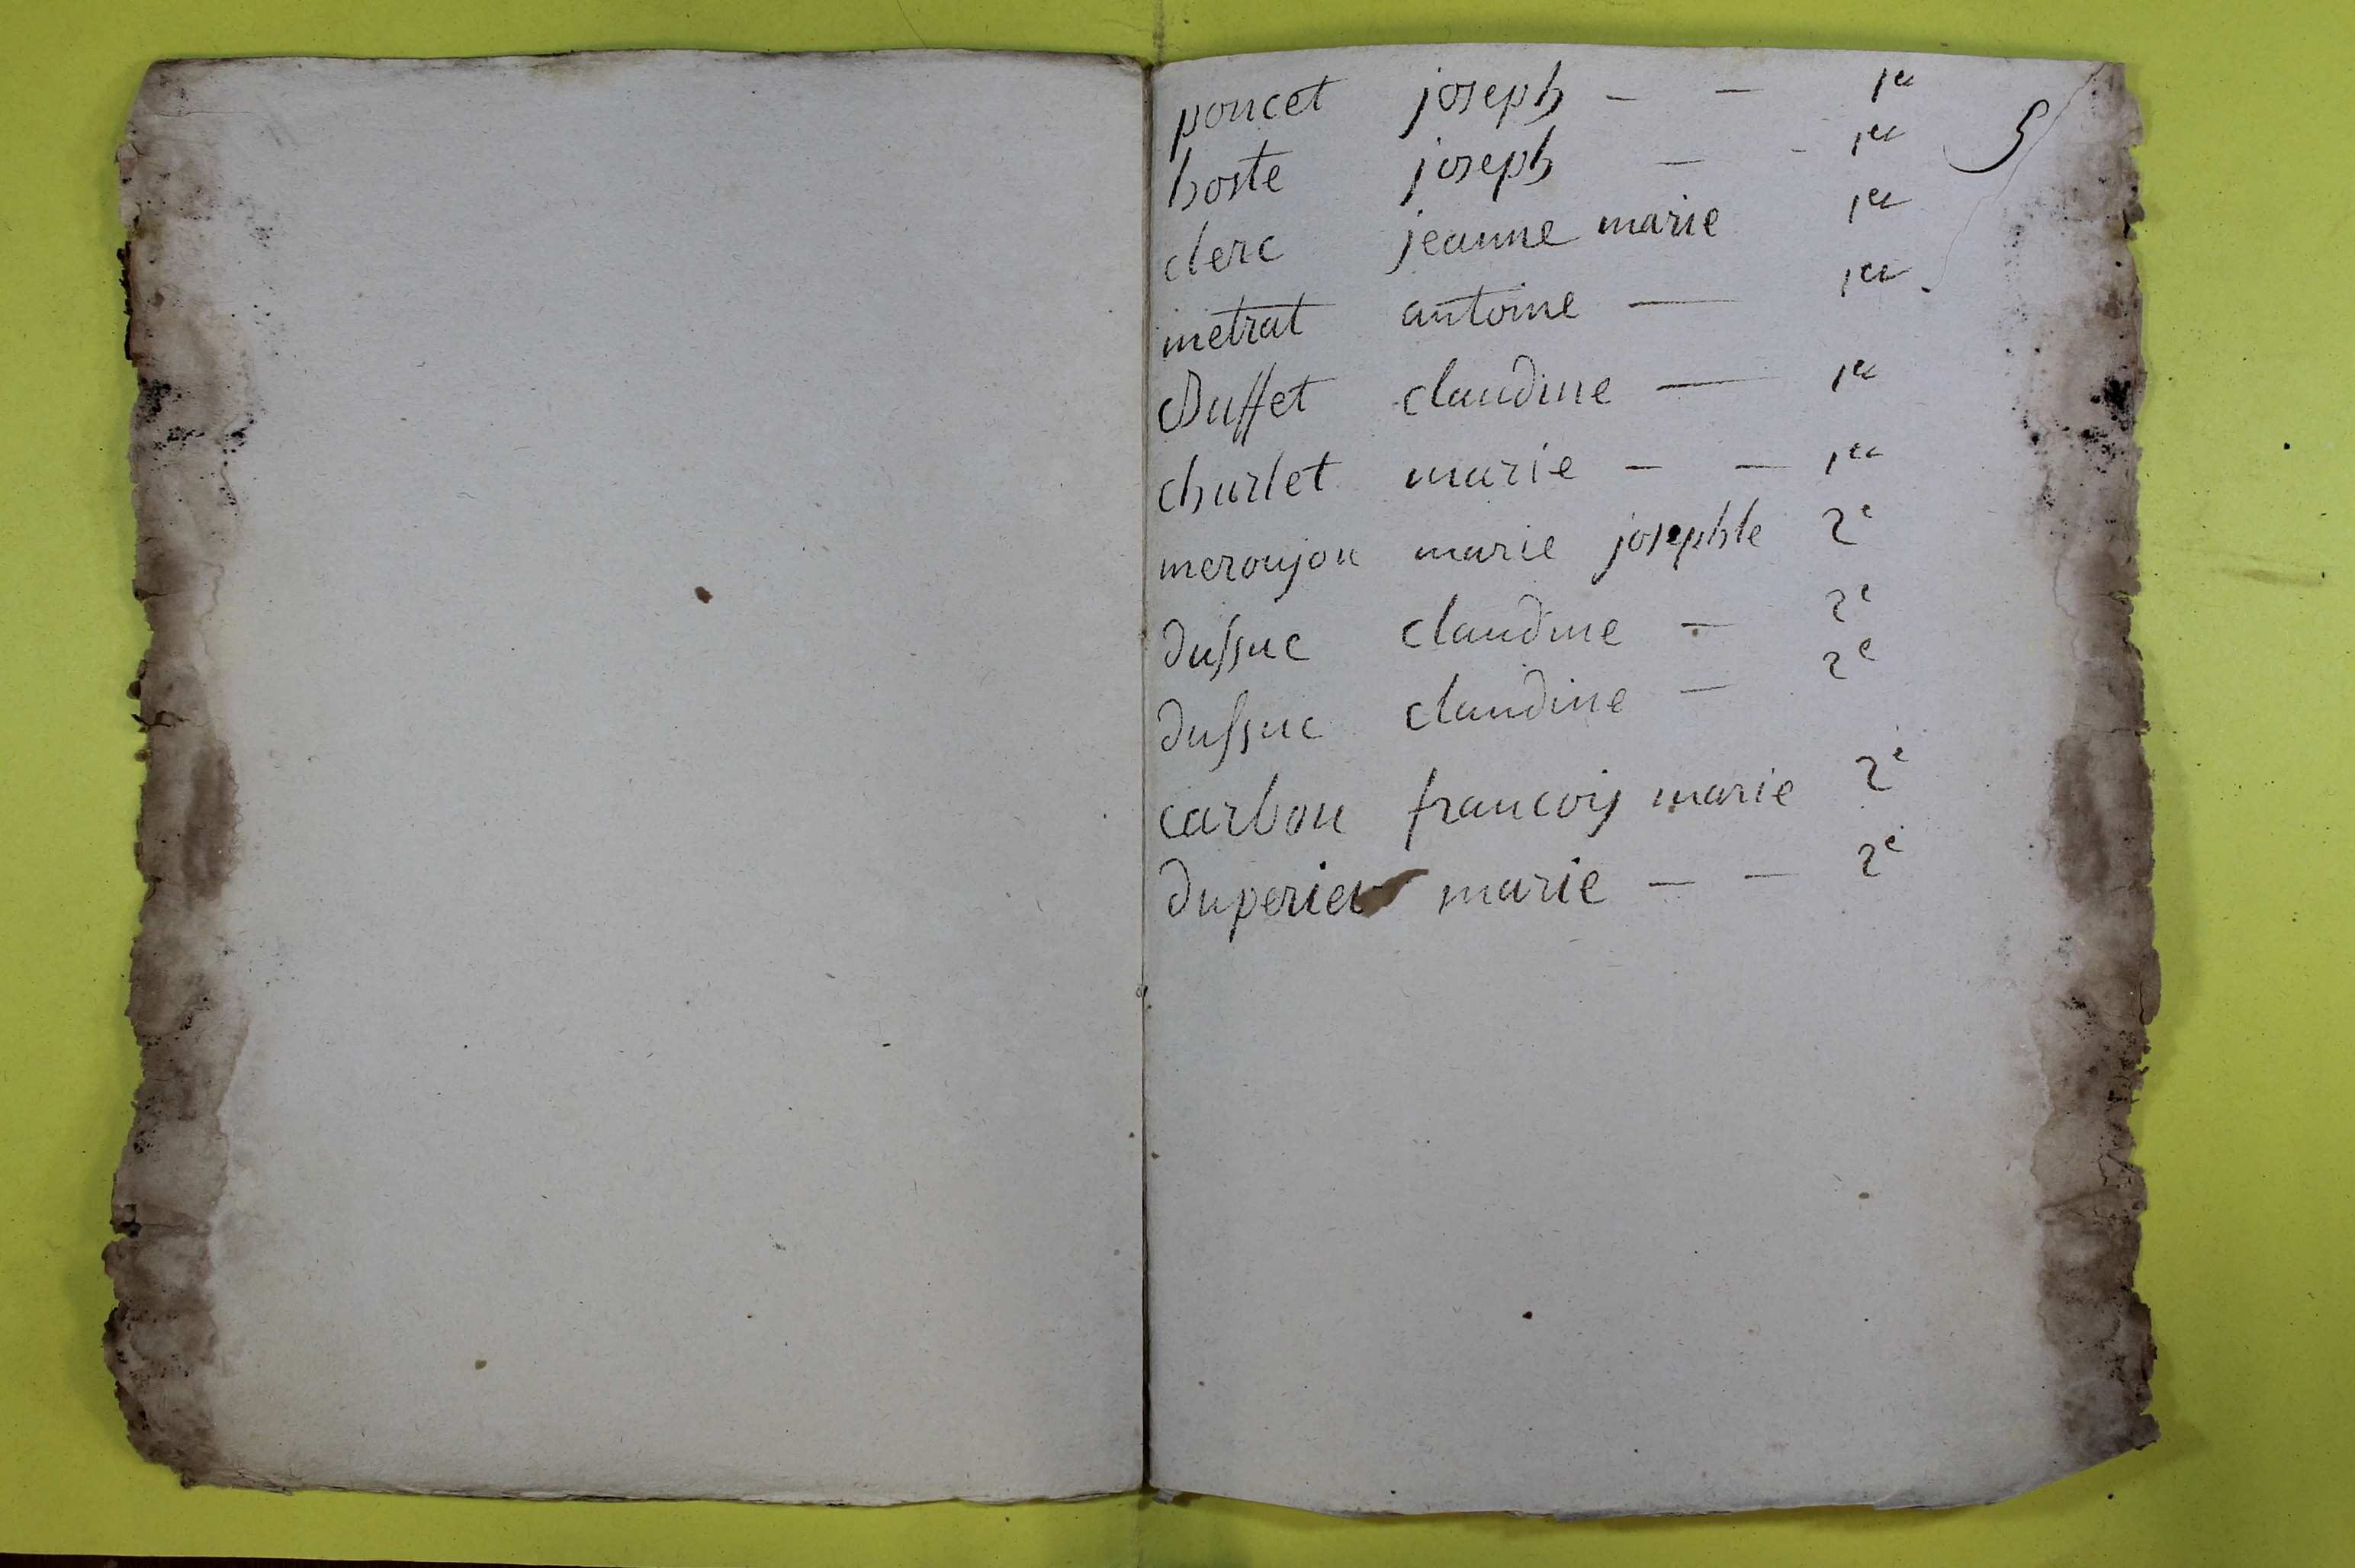 poncet joseph — — 1er
hoste joseph — - 1er
clerc jeanne marie 1er
metrat antoine — 1er
Buffet claudine — 1er
churlet marie — — 1er
meroujon marie josephte 2e
dussuc claudine — 2e
dussuc claudine — 2e
carbon francois marie 2e
duperier marie — — 2e